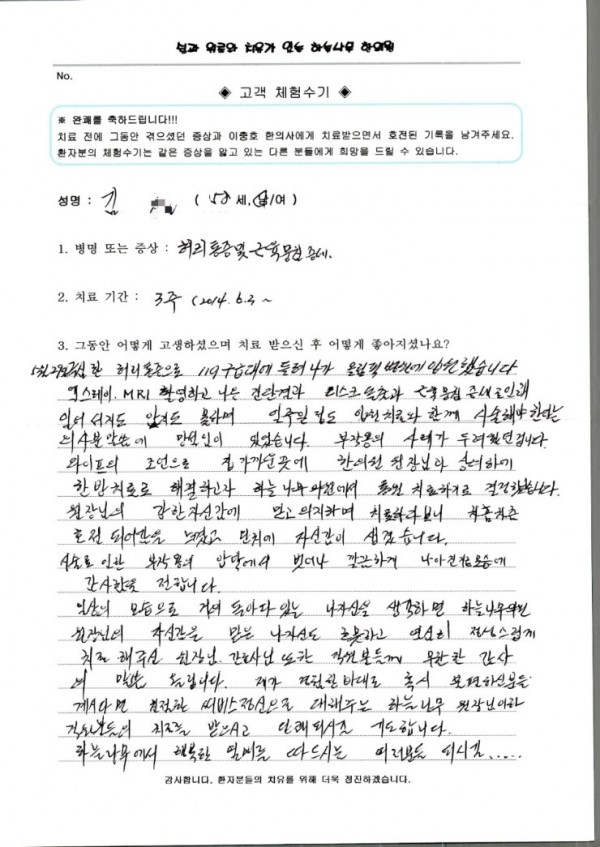 No.
◈ 고객 체험수기 ◈
※ 완쾌를 축하드립니다!!!
치료 전에 그동안 겪으셨던 증상과 이충호 한의사에게 치료받으면서 호전된 기록을 남겨주세요.
환자분의 체험수기는 같은 증상을 앓고 있는 다른 분들에게 희망을 드릴 수 있습니다.
성명 : 김 ( 52 세, 남/여 )
1. 병명 또는 증상 : 허리통증 및 근육뭉침 증세.
2. 치료 기간 : 3주 (2014. 6.3 ~
3. 그동안 어떻게 고생하셨으며 치료 받으신 후 어떻게 좋아지셨나요?
한 허리통증으로 119 구급대에 들려 나가 입원했습니다
엑스레이. MRI 촬영하고 나온 진단결과 디스크 돌출과 근육뭉침 증세로 인해
서지도 앉지도 못하며 일주일정도 입원치료와 함께 시술해야 한다는
의사분 말씀에 망설임이 있었습니다. 부작용의 사례가 두려웠던 겁니다
와이프의 조언으로 집 가까운곳에 한의원 원장님과 상의하에
한방치료로 해결하고자 하늘나무의원에서 통원 치료하기로 결정했습니다.
원장님의 강한 자신감에 믿고 의지하며 치료하다보니 차츰차츰
호전 되어감을 느꼈고 자신감이 생겼습니다.
시술로 인한 부작용의 압박에서 벗어나 깔끔하게 나아진 모습에
감사함을 전합니다.
일상의 모습으로 거의 돌아와 있는 나자신을 생각하면 하늘나무의원
원장님의 자신감을 믿은 나자신도 흐뭇하고 열심히 정성스럽게
치료해주신 원장님. 간호사님 또한 직원분들께 무한한 감사
의 말씀 드립니다. 제가 경험한바대로 혹시 불편하신분들
계시다면 친절한 써비스정신으로 대해주는 하늘나무 원장님이하
직원분들의 치료를 받으시고 기도합니다.
하늘나무에서 행복한 열매를 따드시는 여러분들 되시길.....
감사합니다. 환자분들의 치유를 위해 더욱 정진하겠습니다.